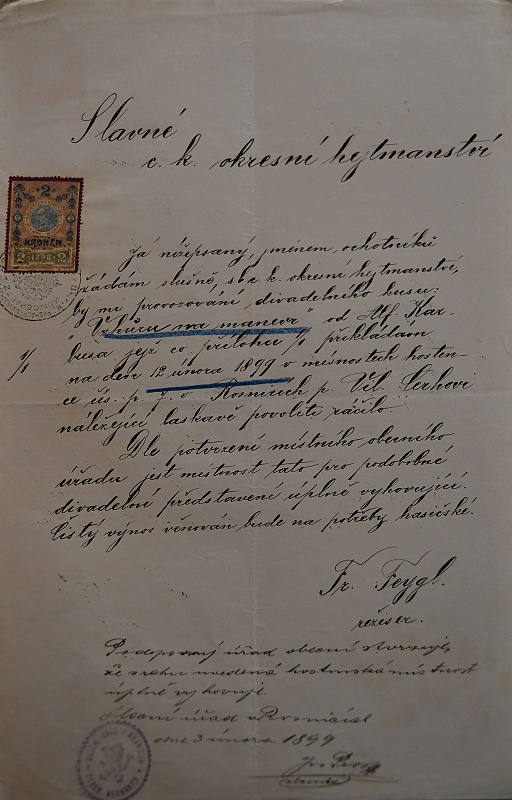 Slavné
c. k. okresné hejtmanství
2
KRONEN
2 1898 2
Já nížepsaný, jménem ochotníků
žádám slušně sl. c. k. okresné hejtmanství,
by mi provozování divadelního kusu:
"Vzhůru na manevr" od Alf. Kar-
1/1 busa jejž co přílohu 1/1 překládám
na den 12 února 1899 v místnostech hostin-
ce čís. p. 7. v Rosnicích p. Vil. Čerhovi
náležející laskavě povoliti ráčilo.
Dle potvrzení místního obecního
úřadu jest místnost tato pro podobné
divadelní představení úplně vyhovující.
Čistý výnos věnován bude na potřeby hasičské.
Fr. Feygl.
režiser.
Podepsaný úřad obecní stvrzuje,
že svrchu uvedená hostinská místnost
úplně vyhovuje.
Obecní úřad v Rosnicích
dne 3 února 1899